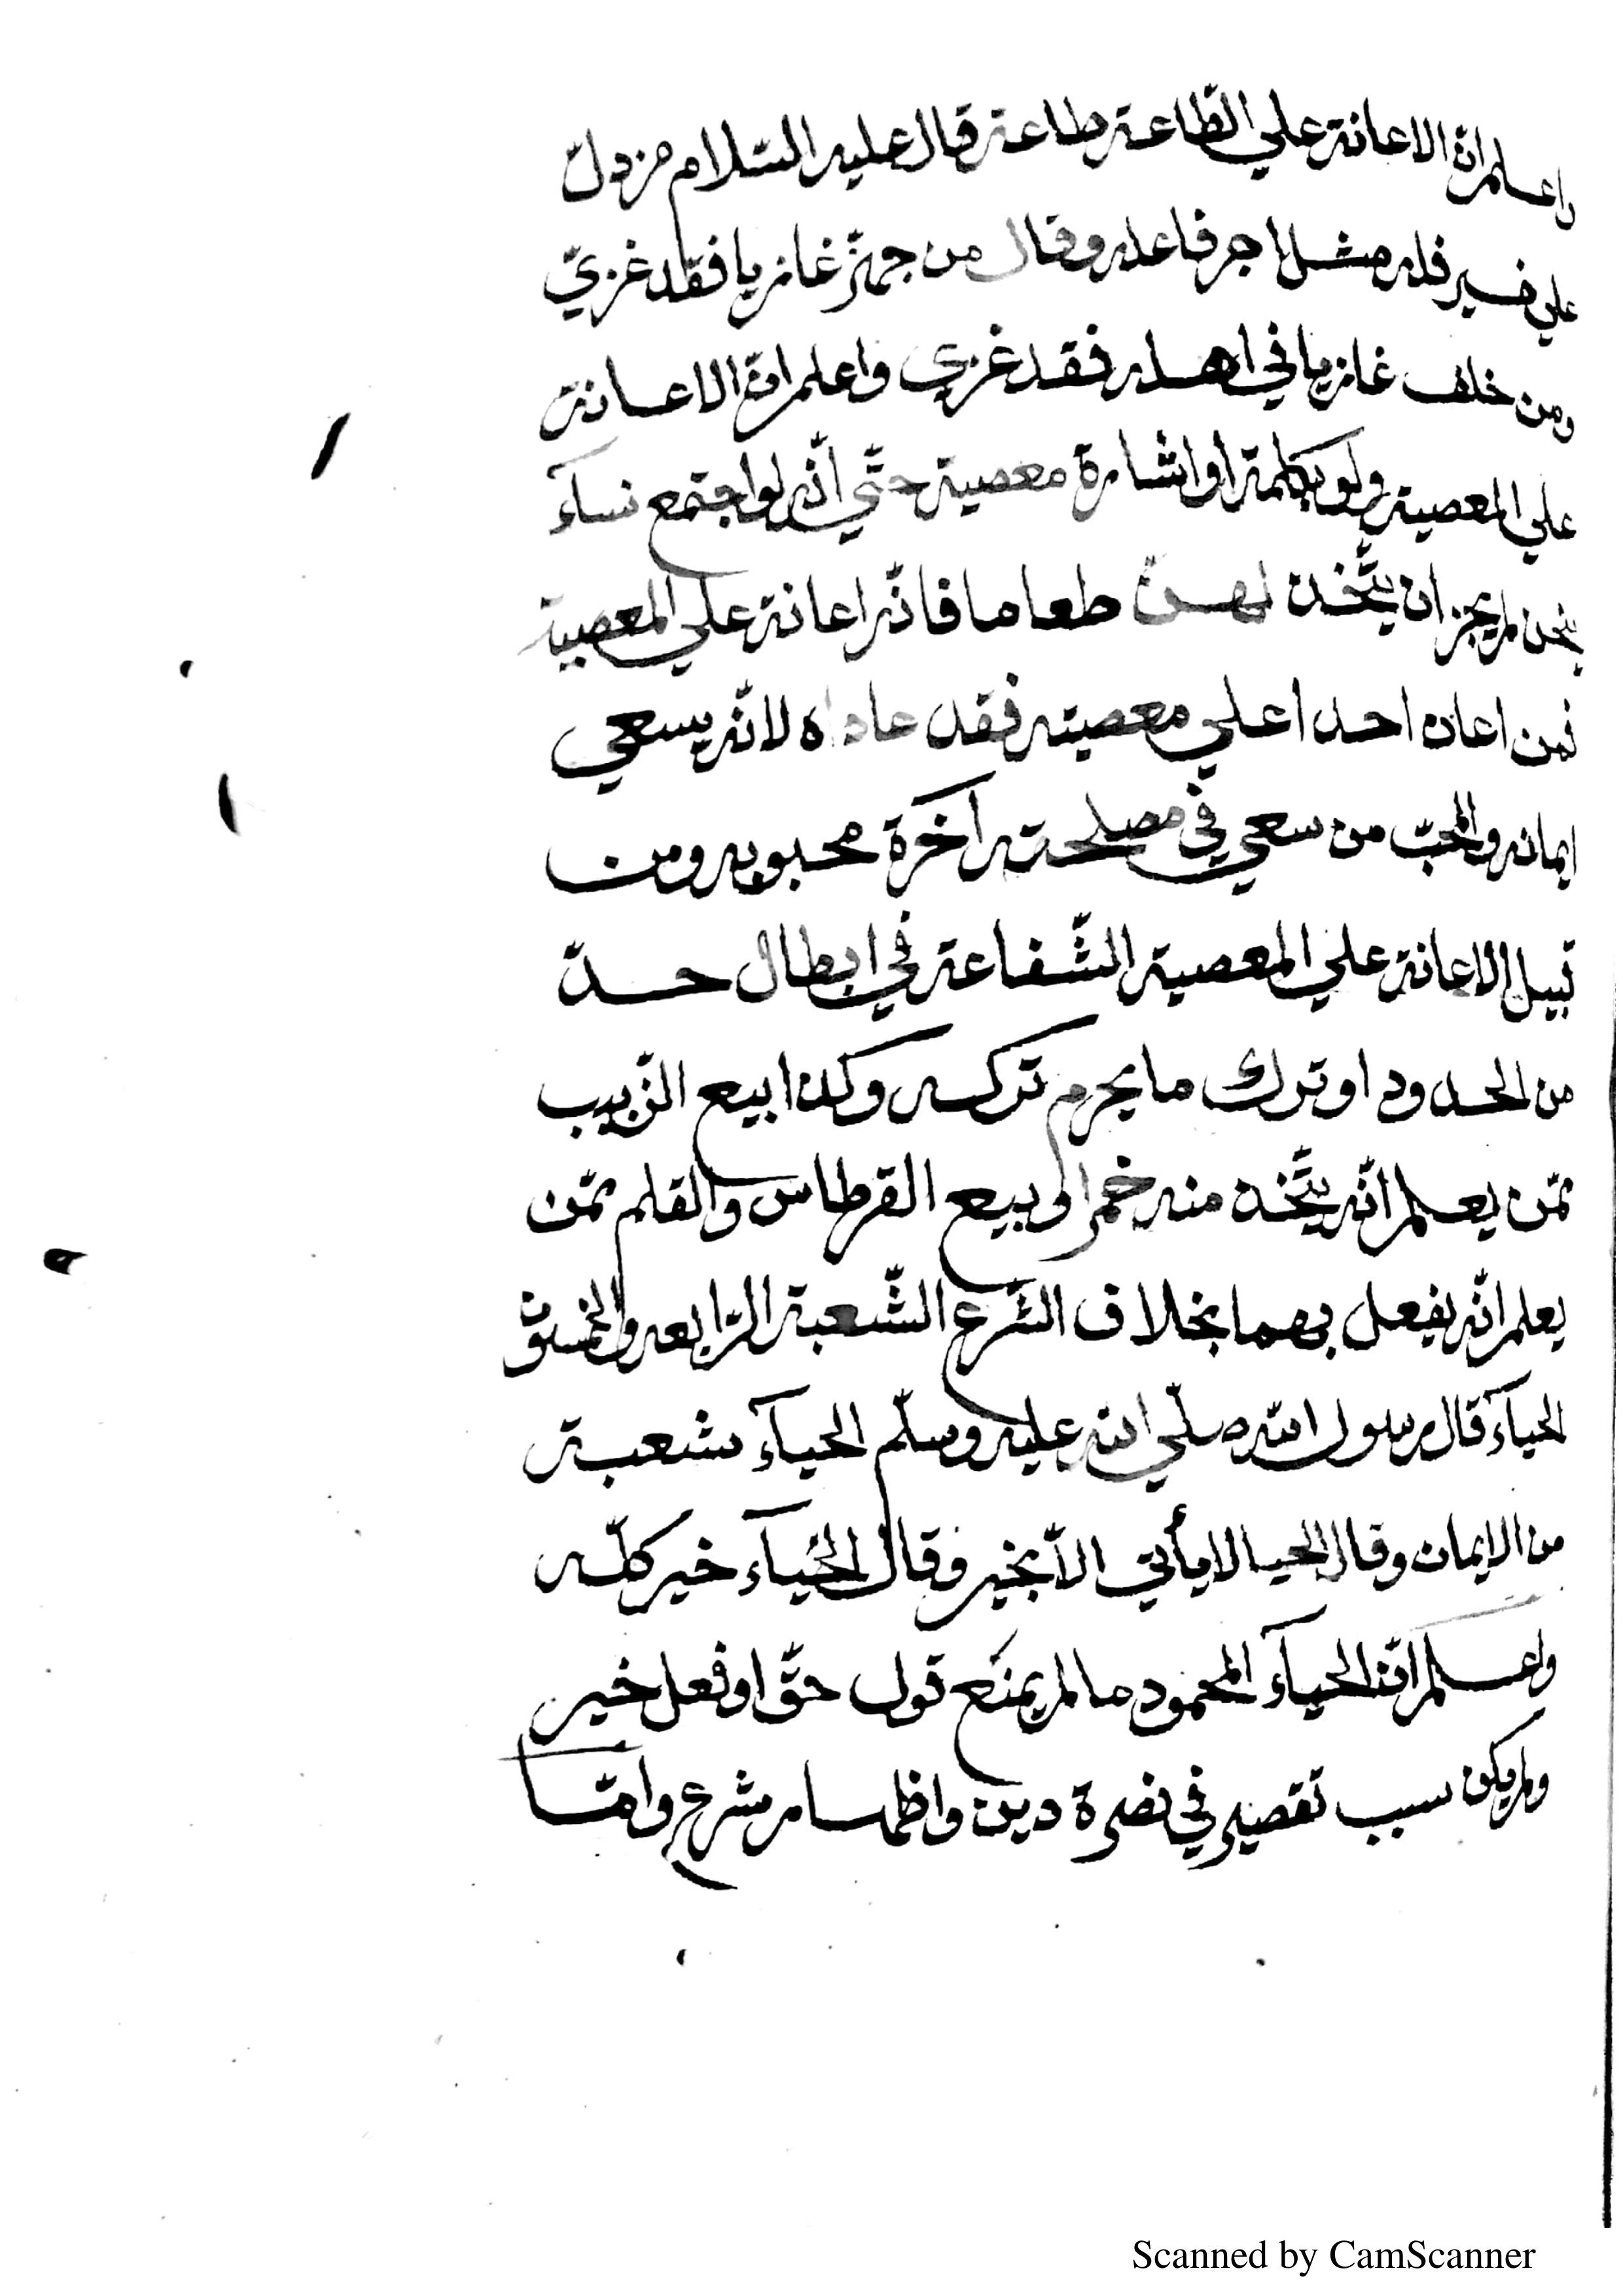 واعلم ان الاعانة علي الطّاعة طاعة قال عليه السّلام من دلّ
علي خير فله مثل اجر فاعله وقال من جهّز غازيا فقد غزيّ
ومن خلف غازيا في اهله فقد غزي واعلم انّ الاعانة
علي المعصية ولو بكلمة او اشارة معصية حتّي انّه لو اجتمع نسآء
ينحن لم يجز ان يتّخذ لهنّ طعاما فانّه اعانة علي المعصية
فمن اعان احدا علي معصيته فقد عاداه لانّه يسعي
ايمانه والمحبّ من سعي في مصلحته آخرة محبوبه ومن
قبيل الاعانة علي المعصية الشّفاعة في ابطال حدّ
من الحدود او ترك ما يحرم تركه وكذا بيع الزّبيب
ممّن يعلم انّه يتّخذ منه خمرا وبيع القرطاس والقلم ممّن
يعلم انّه يفعل بهما بخلاف الشّرع الشّعبة الرّابعه والخمسون
الحيآء قال رسول الله صلّي الله عليه وسلّم الحيآء شعبة
من الايمان وقال الحيا لا يأتي الاّ بخير وقال الحيآء خير كلّه
واعلم انّ الحيآء المحمود ما لم يمنع قول حقّ او فعل خير
ولم يكن سبب تقصير في نصرة دين واظهار شرع وامّا
Scanned by CamScanner